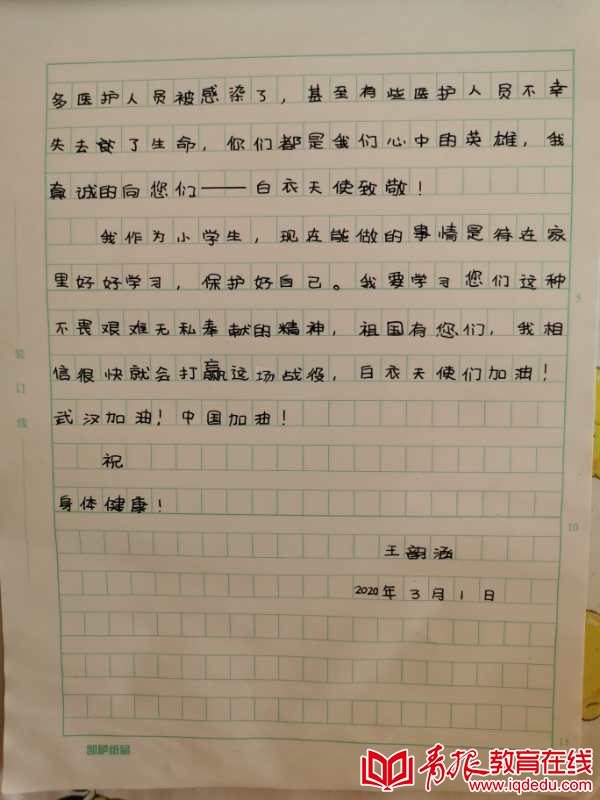 多医护人员被感染了，甚至有些医护人员不幸
失去了生命，你们都是我们心中的英雄，我
真诚的向您们——白衣天使致敬！
我作为小学生，现在能做的事情是待在家
里好好学习，保护好自己。我要学习您们这种
不畏艰难无私奉献的精神，祖国有您们，我相
信很快就会打赢这场战役，白衣天使们加油！
武汉加油！中国加油！
祝
身体健康！
王韵涵
2020年3月1日
5
10
15
装订线
凯萨纸品
青报教育在线
www.iqdedu.com